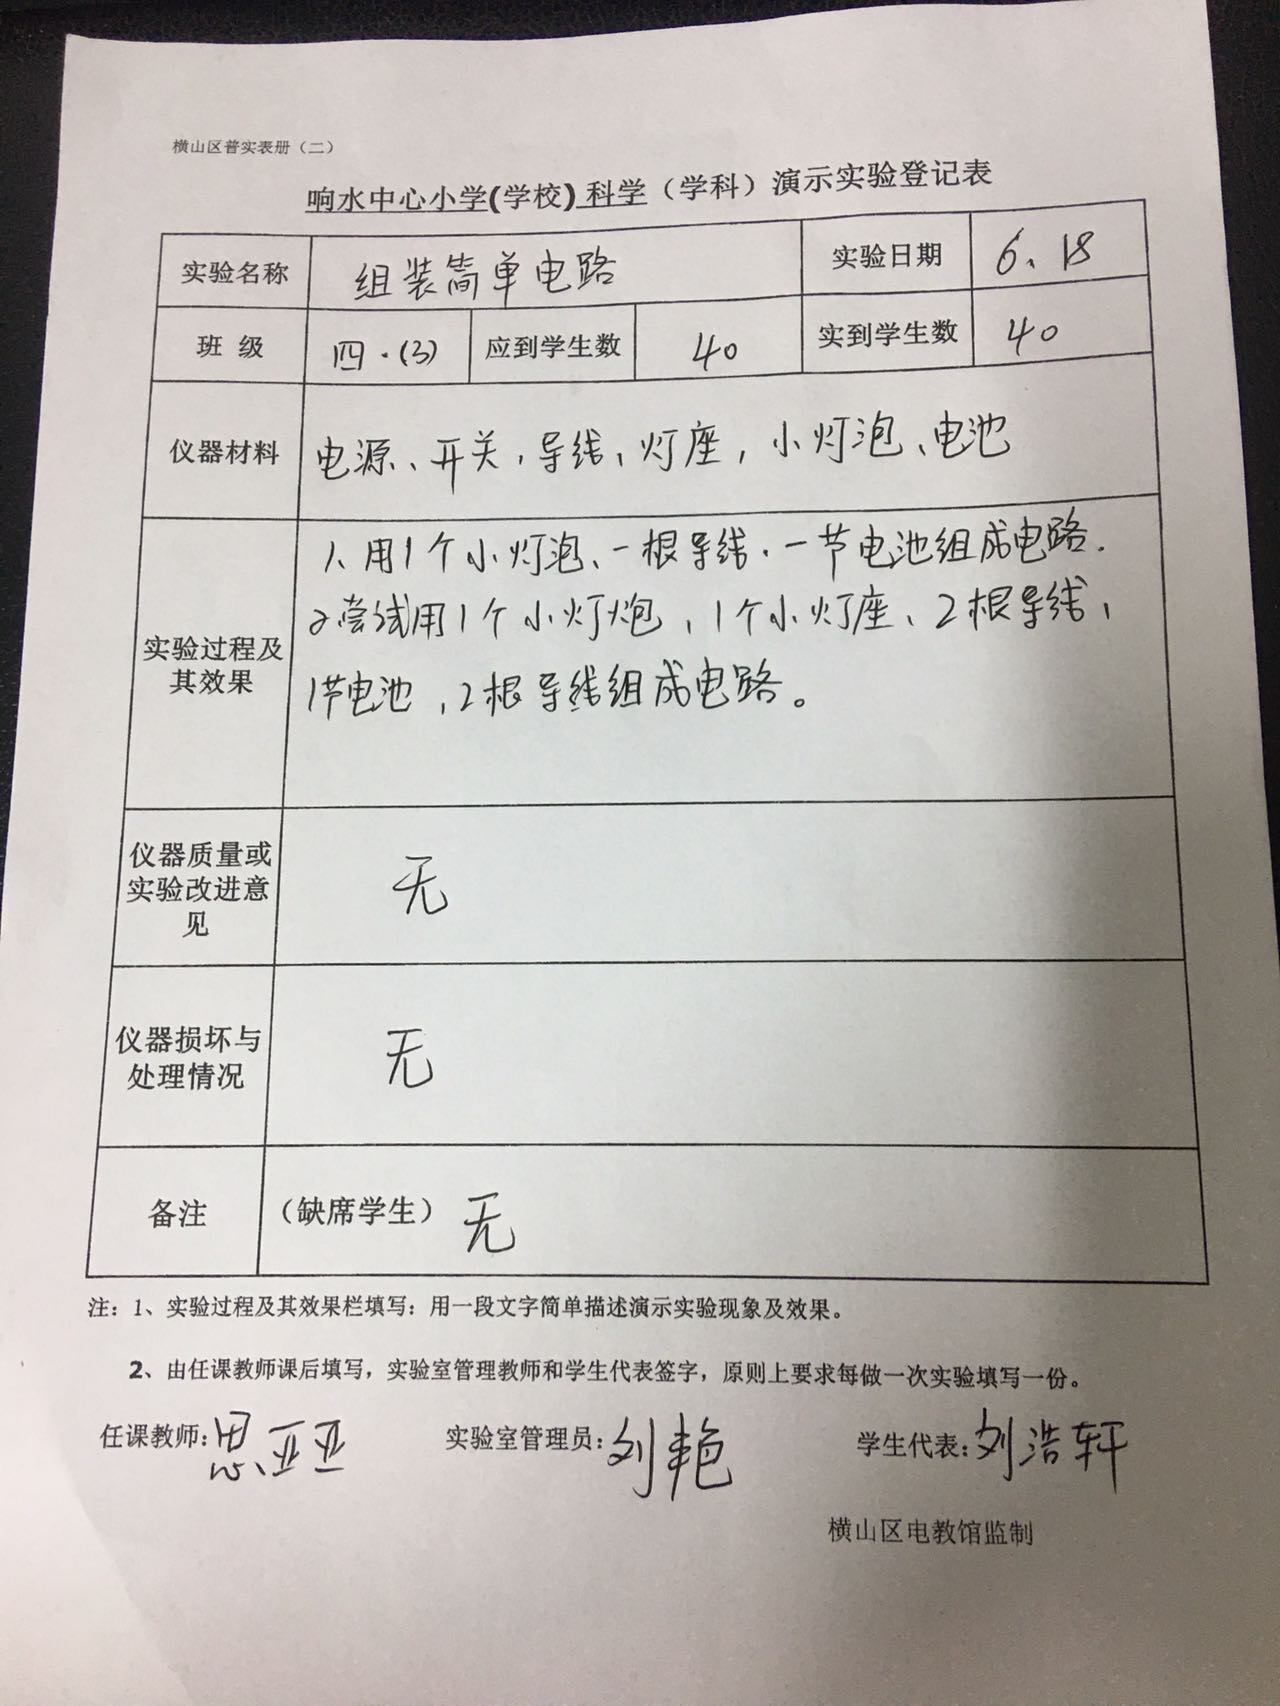 横山区普实表册（二）
响水中心小学(学校) 科学（学科）演示实验登记表
实验名称 组装简单电路 实验日期 6、18
班 级 四·(3) 应到学生数 40 实到学生数 40
仪器材料 电源、开关，导线、灯座，小灯泡、电池
实验过程及
其效果
1、用1个小灯泡、一根导线、一节电池组成电路.
2尝试用1个小灯炮，1个小灯座、2根导线，
1节电池，2根导线组成电路。
仪器质量或
实验改进意
见
无
仪器损坏与
处理情况
无
备注 （缺席学生）无
注：1、实验过程及其效果栏填写：用一段文字简单描述演示实验现象及效果。
2、由任课教师课后填写，实验室管理教师和学生代表签字，原则上要求每做一次实验填写一份。
任课教师: 思亚亚 实验室管理员: 刘艳 学生代表: 刘浩轩
横山区电教馆监制